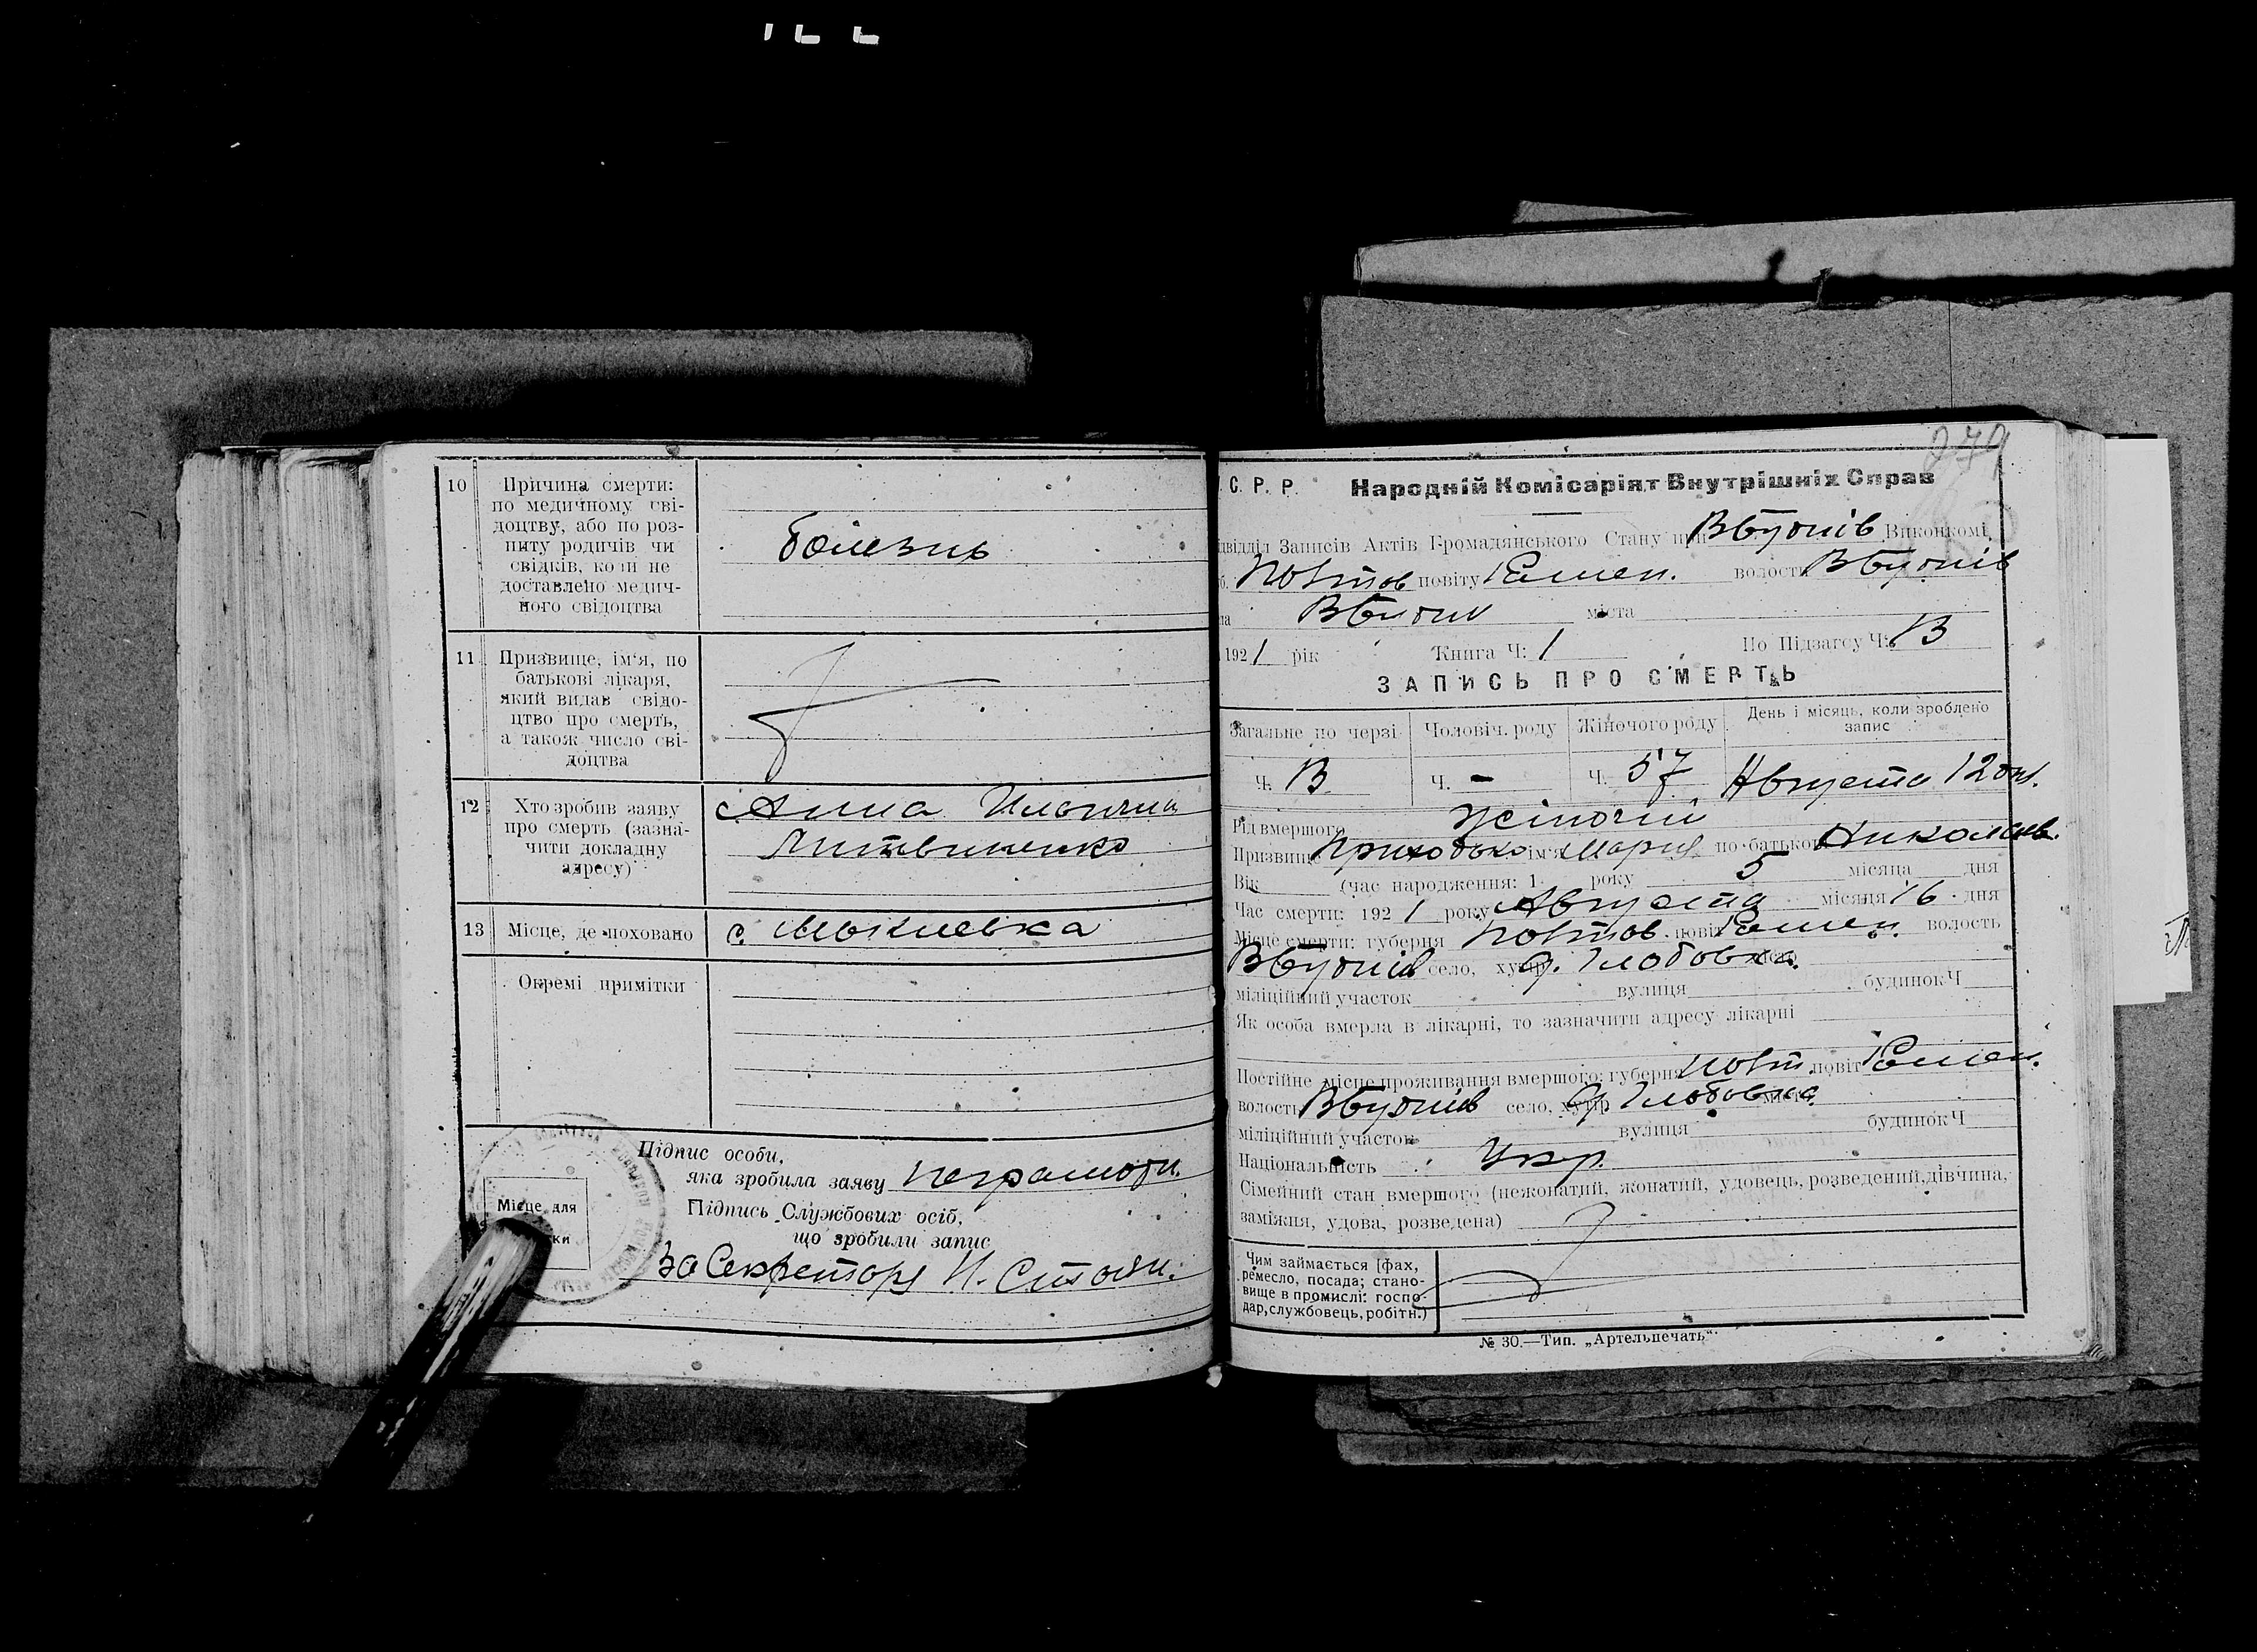 10 Причина смерти:
по медичному сві-
доцтву, або по роз-
питу родичів чи
свідків, коли не
доставлено медич-
ного свідоцтва
болезнь
11 Призвище, ім'я, по
батькові лікаря,
який видав свідо-
цтво про смерть,
а також число сві-
доцтва
12 Хто зробив заяву
про смерть (зазна-
чити докладну
адресу)
Анна
Литвиненко
13 Місце, де поховано
с.
Окремі примітки
Підпис особи,
яка зробила заяву неграмотн.
Підпись Службових осіб,
що зробили запис
За Секретаря И.
Місце для
279
С. Р. Р. Народній Комісаріят Внутрішніх Справ
Записів Актів Громадянського Стану при Виконкомі,
повіту волости
міста
1921 рік Книга Ч: 1 По Підзагсу Ч:
ЗАПИСЬ ПРО СМЕРТЬ
Загальне по черзі Чоловіч. роду Жіночого роду День і місяць, коли зроблено
запис
Ч. Ч. - Ч. 57 Августа 12 дня.
Рід вмершого Жіночий
Призвище Приходько ім'я Мария по-батькові Николаев.
Вік (час народження: 1 року 5 місяца дня
Час смерти: 1921 року Августа місяця 6 дня
Місце смерти: губерня Полтов. повіт волость
село, хутір д. Глобовка.
міліційний участок вулиця будинок Ч
Як особа вмерла в лікарні, то зазначити адресу лікарні
Постійне місце проживання вмершого: губерня Полт. повіт
волость село, хутір д. Глобовка
міліційний участок вулиця будинок Ч
Національність Укр.
Сімейний стан вмершого (нежонатий, жонатий, удовець, розведений, дівчина,
заміжня, удова, розведена)
Чим займається [фах,
ремесло, посада; стано-
вище в промислі: госпо-
дар, службовець, робітн.)
№ 30.—Тип. „Артельпечать“.